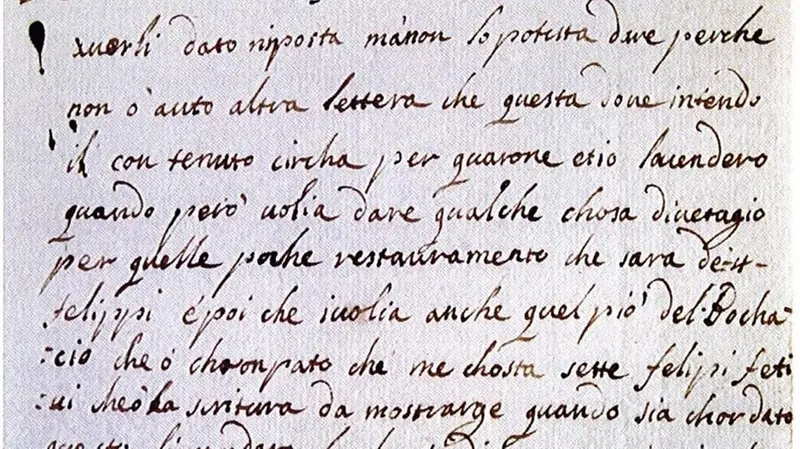 averli dato riposta mà non lo potetta dare perche
non ò auto altra lettera che questa dove intendo
il con tenuto circha per guarone et io lavendero
quando però volia dare qualche chosa di vetagio
per quelle poche restauramento che sara de
felippi é poi che ivolia anche quel più del Bocha
cio che ó chonpato che me chosta sette felipi feti
vi che ò la scritura da mostrarge quando sia chordato